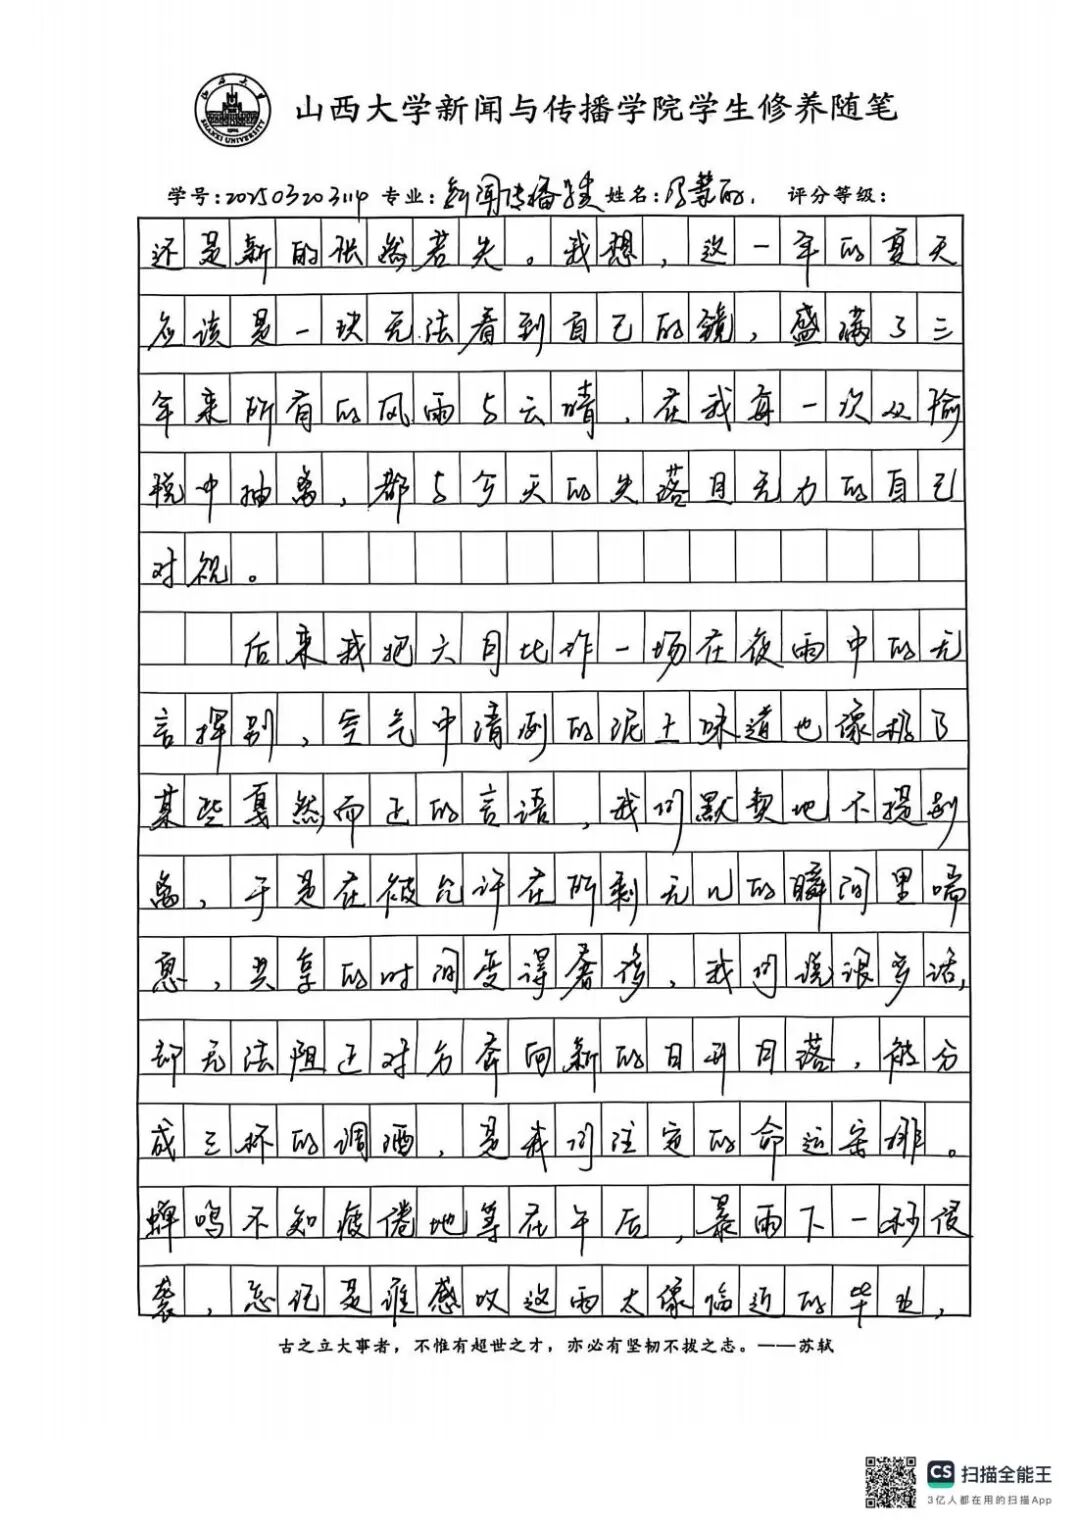 山西大学新闻与传播学院学生修养随笔
学号:202503203114 专业:新闻传播学类 姓名: 评分等级:
还是新的怅然若失。我想,这一年的夏天
应该是一块无法看到自己的镜,盛满了三
年来所有的风雨与云晴,在我每一次从愉
悦中抽离,都与今天的失落且无力的自己
对视。
后来我把六月比作一场在夜雨中的无
言挥别,空气中清冽的泥土味道也像极了
某些戛然而止的言语,我们默契地不提别
离,于是在被允许在所剩无几的瞬间里喘
息,共享的时间变得奢侈,我们说很多话,
却无法阻止对方奔向新的日升月落,被分
成三杯的调酒,是我们注定的命运安排。
蝉鸣不知疲倦地等在午后,暴雨下一秒侵
袭,忘记是谁感叹这雨太像临近的毕业,
古之立大事者,不惟有超世之才,亦必有坚韧不拔之志。——苏轼
CS 扫描全能王
3亿人都在用的扫描App